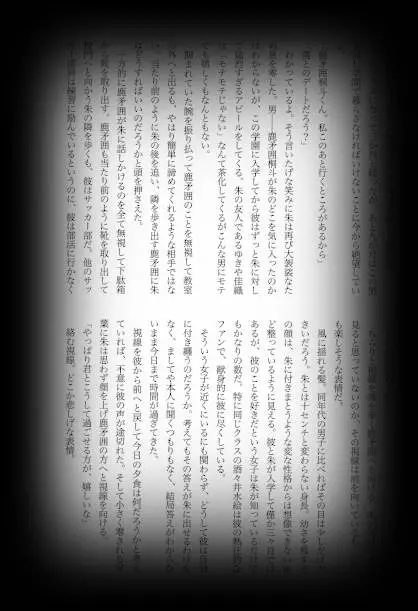 「鹿矛囲桐斗くん。私このあと行くところがあるから」
「僕とのデートだろう？」
わかっているよ、そう言いたげな笑みに朱は再び大袈裟なた
め息を零した。男――鹿矛囲桐斗が朱のどこを気に入ったのか
はわからないが、この学園に入学してから彼はずっと朱に対し
て熱烈すぎるアピールをしてくる。朱の友人であるゆきや佳織
は、モテモテじゃない」なんて茶化してくるがこんな男にモテ
ても嬉しくもなんともない。
掴まれていた腕を振り払って鹿矛囲のことを無視して教室
の外へと出るも、やはり簡単に諦めてくれるような相手ではな
い。当たり前のように朱の後を追い、隣を歩き出す鹿矛囲に朱
はどうすればいいのだろうかと頭を押さえた。
一方的に鹿矛囲が朱に話しかけるのを全て無視して下駄箱
から靴を取り出す。鹿矛囲も当たり前のように靴を取り出して
校門へと向かう朱の隣を歩くも、彼はサッカー部だ。他のサッ
部員は練習に励んでいるというのに、彼は部活に行かなく
見ると思っていないのか、その視線は前を向いていて
も楽しそうな表情だ。
風に揺れる髪。同年代の男子に比べればその目は少しだけ
きいだろう。朱とは十センチと変わらない身長。幼さを残す
の顔は、朱に付きまとうような変な性格からは想像できない
ど整っているように見える。彼と朱が入学して僅か三ヶ月
あるが、彼のことを好きだという女子は朱が知っているだけ
もかなりの数だ。特に同じクラスの酒々井水絵は彼の熱狂的な
ファンで、献身的に彼に尽くしている。
そういう女子が近くにいるにも関わらず、どうして彼は自分
に付き纏うのだろうか。考えてもその答えが朱に出せるわけも
なく、ましてや本人に聞くつもりもなく、結局答えがわからな
いまま今日まで時間が過ぎてきた。
視線を彼から前へと戻して今日の夕食は何だろうかと考え
ていれば、不意に彼の声が途切れた。そして小さく零される言
葉に朱は思わず顔を上げ鹿矛囲の方へと視線を向ける。
「やっぱり君とこうして過ごせる方が、嬉しいな」
絡む視線。どこか悲しげな表情。